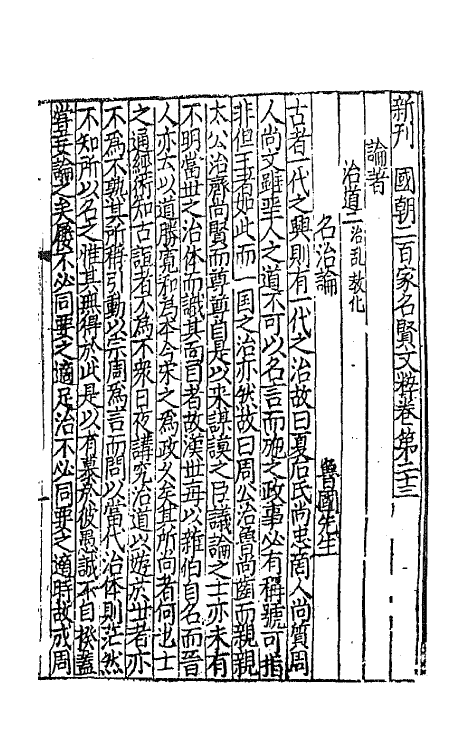 新刊國朝二百家名賢文粹卷第二十三
論著
治道二治亂教化
名治論 魯國先生
古者一代之興則有一代之治故曰夏后氏尚忠商人尚質周
人尚文雖聖人之道不可以名言而施之政事必有稱號可指
非但王者如此而一国之治亦然故曰周公治魯尚齒而親親
太公治齊尚賢而尊尊自是以来謀謨之臣議論之士亦未有
不明當世之治体而識其面目者故漢世再以雜伯自名而晉
人亦太以道勝寛和為本今宋之為政久矣其所向者何也士
之通經術知古誼者不為不衆日夜講究治道以遊於世者亦
不為不孰其所稱引動以宗周為言而問以當代治体則茫然
不知所以名之惟其無得於此是以有慕於彼愚誠不自揆蓋
嘗妄論之矣屨不必同要之適足治不必同要之適時故成周